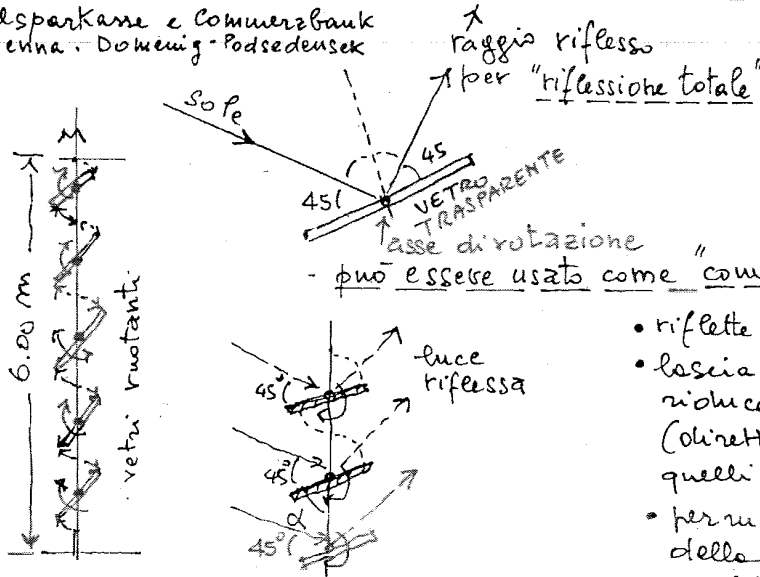 lsparkasse e Commerzbank
enna. Domenig-Podsedensek
raggio riflesso
per "riflessione totale"
Sole
45
45
VETRO
TRASPARENTE
asse di rotazione
- può essere usato come "com
6.00 m
vetri ruotanti
luce
riflessa
45°
45°
α
45°
• riflette
• lascia
riduc
(dirett
quelli
• per
della